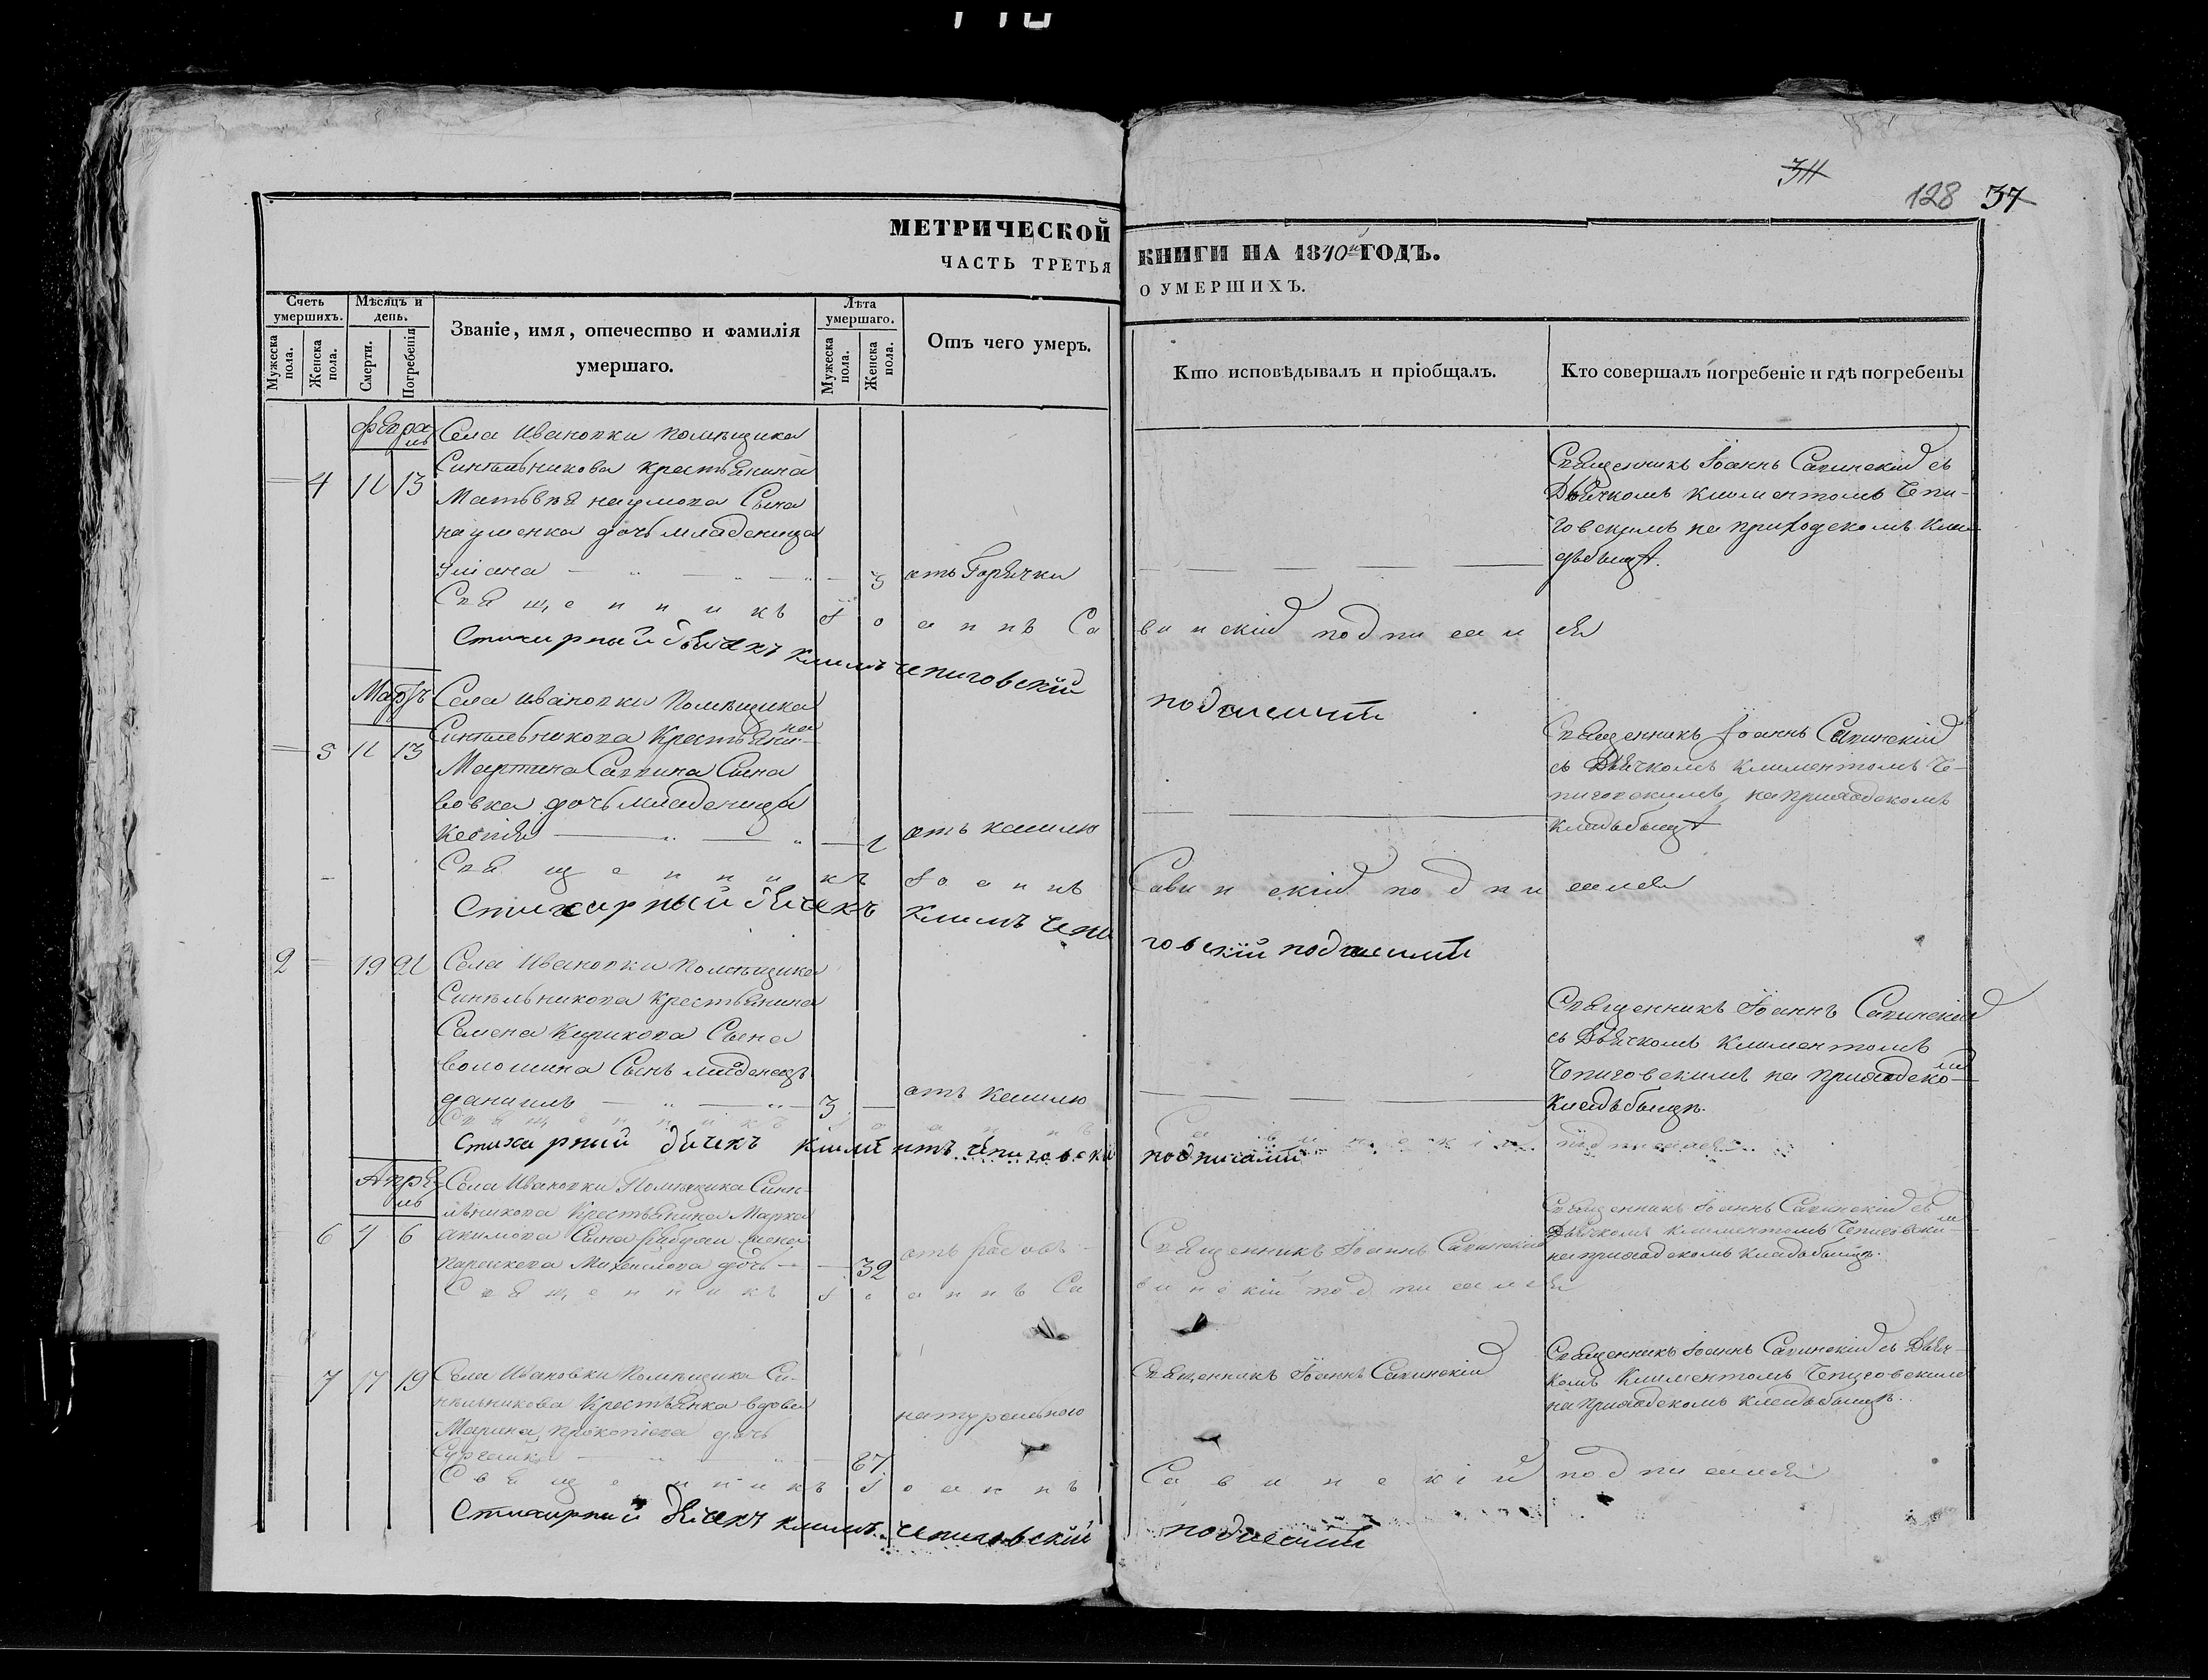 128 37
МЕТРИЧЕСКОЙ КНИГИ НА 1840й ГОДЪ.
ЧАСТЬ ТРЕТЬЯ О УМЕРШИХЪ.
Счетъ умершихъ.
Мужеска пола.
Женска пола.
Мѣсяцъ и день.
Смерти.
Погребенія
Званіе, имя, отечество и фамилія
умершаго.
Лѣта умершаго.
Мужеска пола.
Женска пола.
Отъ чего умеръ.
Кто исповѣдывалъ и пріобщалъ.
Кто совершалъ погребеніе и гдѣ погребены
Февраль
Села Ивановки помѣщика
Синельникова крестьянина
4 11 13
Матвѣя наумова Сына
науменка дочь младеница
3 отъ Горячки
Священникъ Іоаннъ Савинскій съ
Дьячкомъ климентомъ Чепи-
говскимъ на приходскомъ кла-
дьбищѣ.
Священникъ Іоаннъ Савинскій подписался
Стихарный дьячекъ климъ чепиговскій
Мартъ
Села Ивановки Помѣщика
Синельникова Крестьянина
5 11 13
Мартина Саввина Сына
вовка дочь младеница
Ксенія 1 отъ кашлю
Священникъ Іоаннъ Савинскій
съ Дьячкомъ Климентомъ Че-
пиговскимъ на приходскомъ
кладьбищѣ
Священникъ Іоаннъ Савинскій подписался
Стихарный дьячекъ климъ чепиговскій
2 19 21
Села Ивановки помѣщика
Синельникова Крестьянина
Семена Кирикова Сына
волошина Сынъ младенецъ
даниилъ 3 отъ кашлю
Священникъ Іоаннъ Савинскій
съ Дьячкомъ Климентомъ
Чепиговскимъ на приходскомъ
кладьбищѣ.
Священникъ Іоаннъ Савинскій подписался
Стихарный дьячекъ чепиговскій
Апрель
Села Ивановки Помѣщика Сине-
льникова Крестьянина Марка
6 4 6
акимова Сына жена
параскева Михайлова дочь 32
Священникъ Іоаннъ Савинскій
Священникъ Іоаннъ Савинскій съ
Дьячкомъ Климентомъ Чепиговскимъ
на приходскомъ кладьбищѣ.
Священникъ Іоаннъ Савинскій подписался
7 17 19
Села Ивановки Помѣщика Си-
нельникова Крестьянка вдова
Марина прокопіева дочь
87 натурально
Священникъ Іоаннъ Савинскій
Священникъ Іоаннъ Савинскій съ Дьяч-
комъ Климентомъ Чепиговскимъ
на приходскомъ кладьбищѣ.
Священникъ Іоаннъ Савинскій подписался
Стихарный дьячекъ климъ чепиговскій